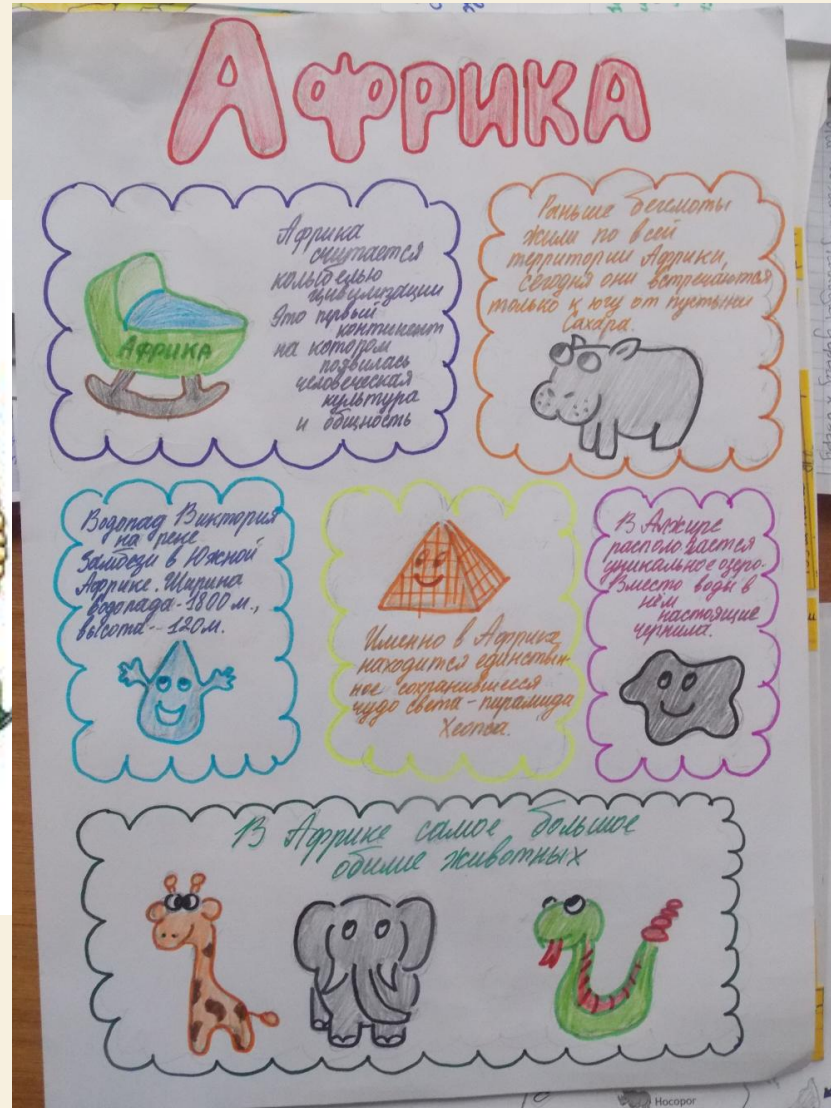 Африка
Африка
считается
колыбелью
цивилизации
Это первый
континент
на котором
появилась
человеческая
культура
и общность
АФРИКА
Раньше бегемоты
жили по всей
территории Африки,
сегодня они встречаются
только к югу от пустыни
Сахара.
Водопад Виктория
на реке
Замбези в Южной
Африке. Ширина
водопада - 1800 м.,
высота - 120 м.
Именно в Африке
находится единствен-
ное сохранившееся
чудо света - пирамида
Хеопса.
В Алжире
распологается
уникальное озеро.
Вместо воды в
нём
настоящие
чернила.
В Африке самое большое
обилие животных
Носорог